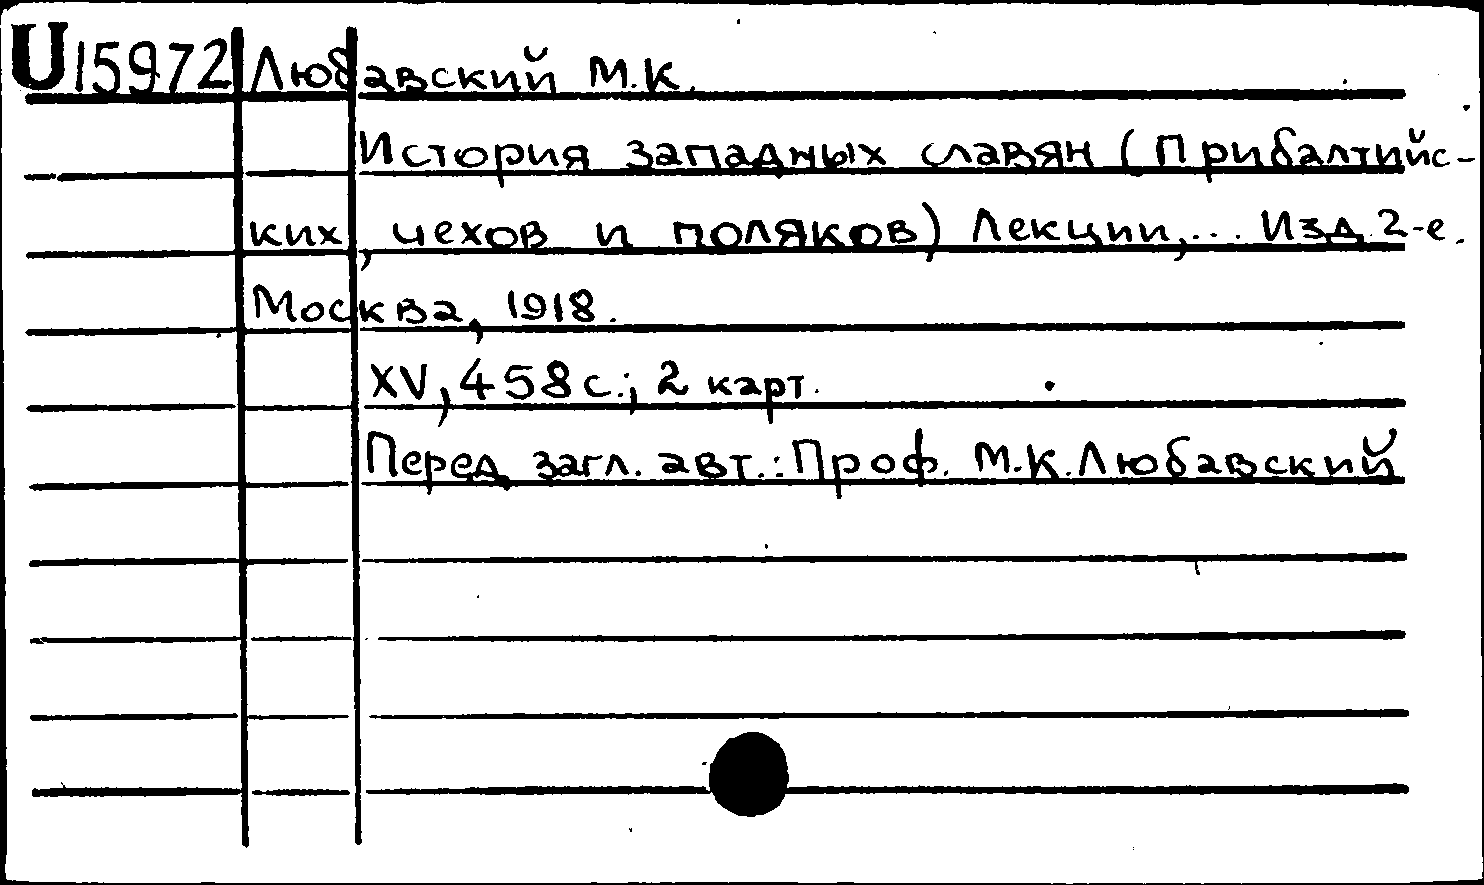 U15972 Любавский М.К.
История западных славян (Прибалтийс-
ких, чехов и поляков) Лекции,... Изд. 2-е.
Москва, 1918.
XV, 458 с.; 2 карт.
Перед загл. авт.: Проф. М.К. Любавский